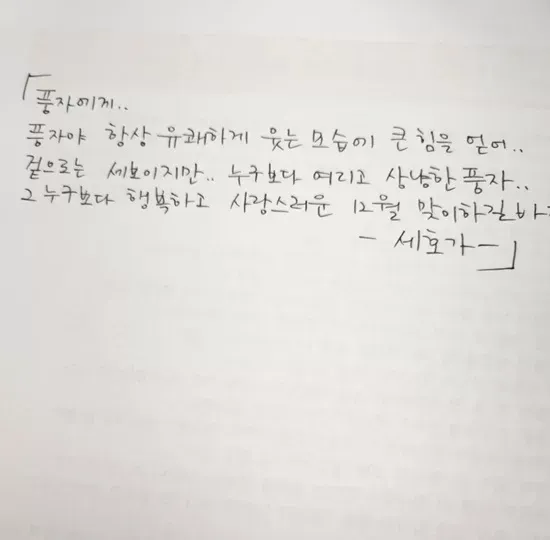 「풍자에게..
풍자야 항상 유쾌하게 웃는 모습에 큰 힘을 얻어..
겉으로는 세보이지만.. 누구보다 여리고 상냥한 풍자..
그 누구보다 행복하고 사랑스러운 12월 맞이하길
- 세호가 -」